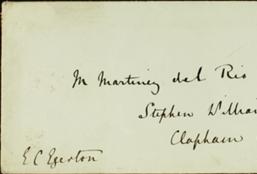 M Martinez del Rio
Stephen Willia
Clapham
E C Egerton